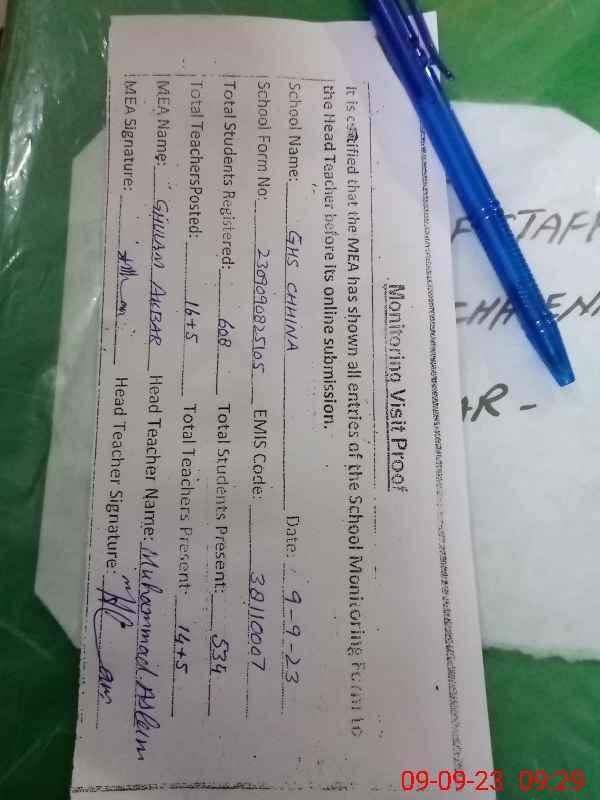 Monitoring Visit Proof
It is certified that the MEA has shown all entries of the School Monitoring Form to
the Head Teacher before its online submission.
School Name: GHS CHHINA Date: 9-9-23
School Form No: 2309090825105 EMIS Code: 38110007
Total Students Registered: 608 Total Students Present: 534
Total TeachersPosted: 16+5 Total Teachers Present: 14+5
MEA Name: GHULAM AKBAR Head Teacher Name: Muhammad Aslam
MEA Signature: Head Teacher Signature:
STAFF
AR -
09-09-23 09:29